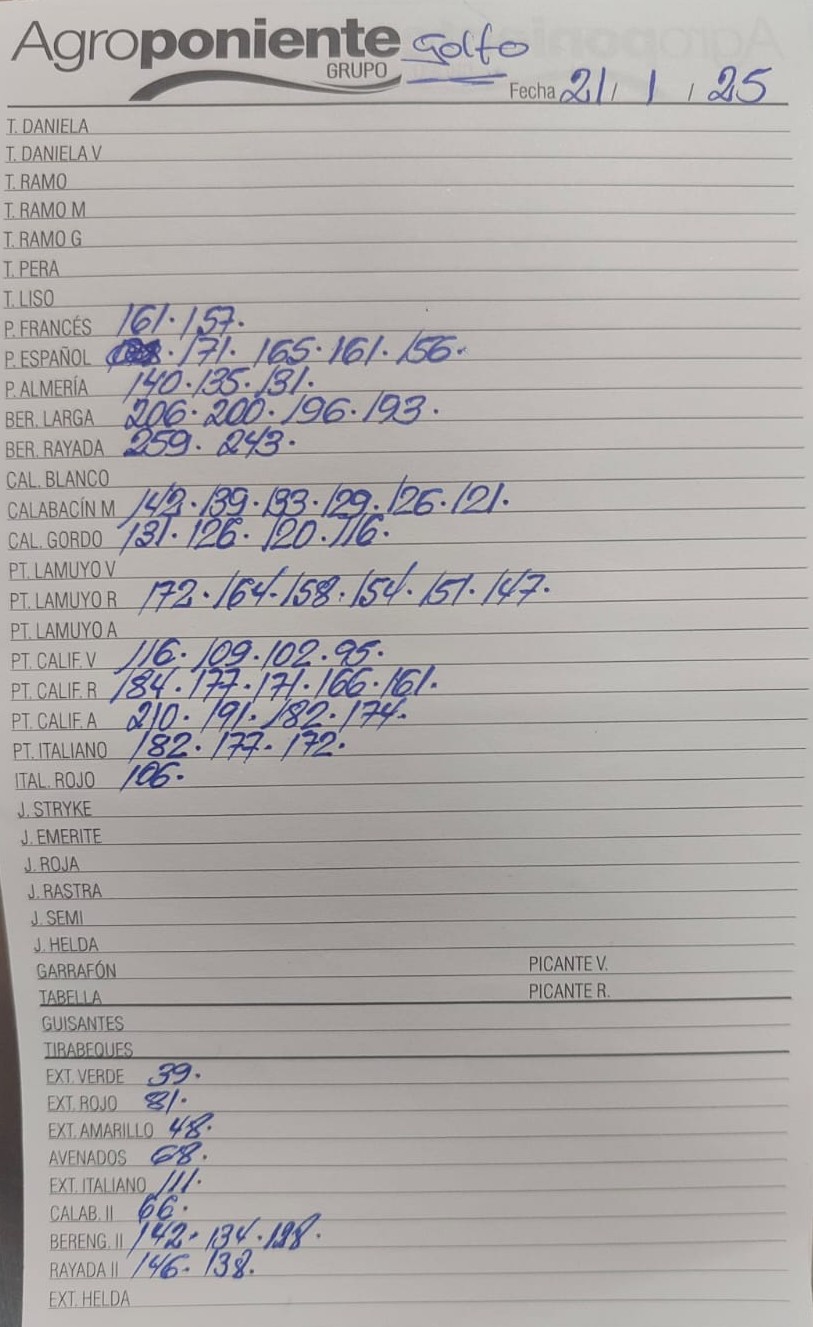 Agroponiente Golfo
GRUPO
Fecha 21 / 1 / 25
T. DANIELA
T. DANIELA V
T. RAMO
T. RAMO M
T. RAMO G
T. PERA
T. LISO
P. FRANCÉS 161. 157.
P. ESPAÑOL . 171. 165. 161. 156.
P. ALMERÍA 140. 135. 131.
BER. LARGA 206. 200. 196. 193.
BER. RAYADA 259. 243.
CAL. BLANCO
CALABACÍN M 142. 139. 133. 129. 126. 121.
CAL. GORDO 131. 126. 120. 116.
PT. LAMUYO V
PT. LAMUYO R 172. 164. 158. 154. 151. 147.
PT. LAMUYO A
PT. CALIF. V 116. 109. 102. 95.
PT. CALIF. R 184. 177. 171. 166. 161.
PT. CALIF. A 210. 191. 182. 174.
PT. ITALIANO 182. 177. 172.
ITAL. ROJO 106.
J. STRYKE
J. EMERITE
J. ROJA
J. RASTRA
J. SEMI
J. HELDA
GARRAFÓN PICANTE V.
TABELLA PICANTE R.
GUISANTES
TIRABEQUES
EXT. VERDE 39.
EXT. ROJO 81.
EXT. AMARILLO 48.
AVENADOS 68.
EXT. ITALIANO 111.
CALAB. II 66.
BERENG. II 142. 134. 128.
RAYADA II 146. 138.
EXT. HELDA